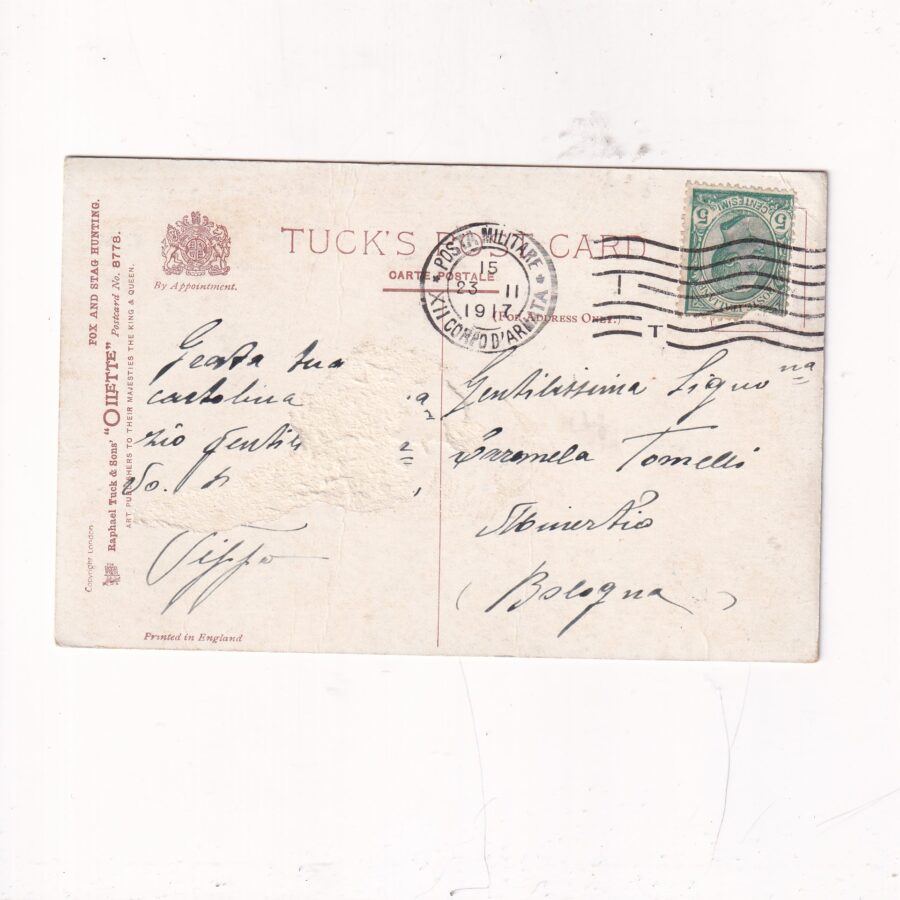 FOX AND STAG HUNTING.
Raphael Tuck & Sons' "OILETTE" Postcard No. 8778.
ART PUBLISHERS TO THEIR MAJESTIES THE KING & QUEEN.
Copyright London
By Appointment.
TUCK'S POST CARD
CARTE POSTALE
(FOR ADDRESS ONLY.)
POSTA MILITARE
15
23 11
1917
XII CORPO D'ARMATA
5 CENTESIMI 5
POSTE ITALIANE
tua
cartolina
zio
Pippo
Gentilissima Signora
Tomelli
Minerbio
(Bologna)
Printed in England